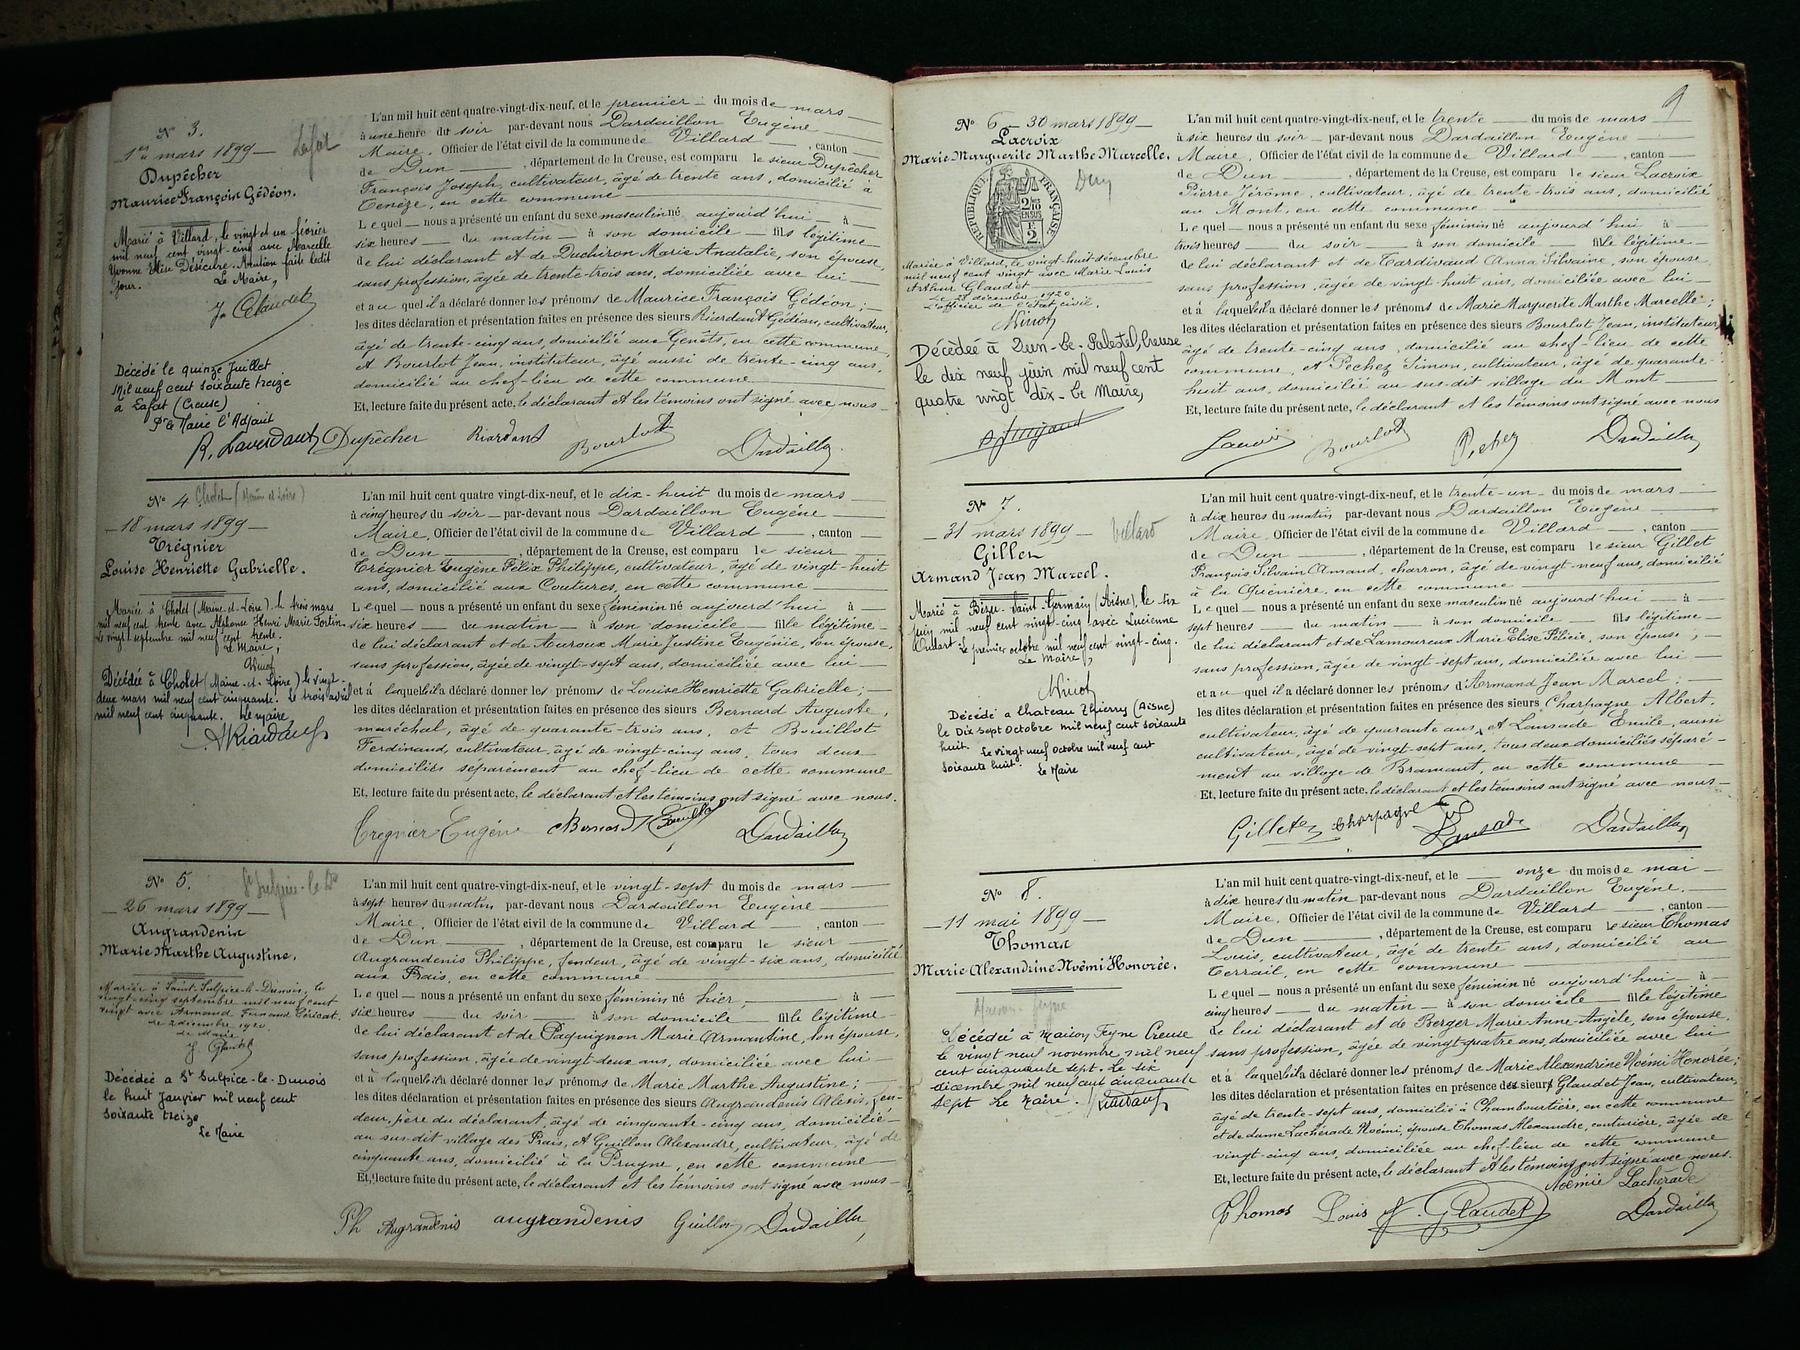 N° 3.
1er mars 1899
Lafat
Dupêcher
Maurice François Gédéon.
Marié à Villard, le vingt et un février
mil neuf cent vingt-cinq avec Marcelle
Yvonne Désécure. Mention faite ledit
jour. Le Maire,
J. Glaudet
Décédé le quinze Juillet
Mil neuf cent soixante treize
à Lafat (Creuse)
Pr le Maire l'Adjoint
R. Laverdant
L'an mil huit cent quatre-vingt-dix-neuf, et le premier du mois de mars
à une heure du soir par-devant nous Dardaillon Eugène
Maire, Officier de l'état civil de la commune de Villard, canton
de Dun, département de la Creuse, est comparu le sieur Dupêcher
François Joseph, cultivateur, âgé de trente ans, domicilié à
Tenèze, en cette commune
Lequel nous a présenté un enfant du sexe masculin né aujourd'hui à
six heures du matin à son domicile fils légitime
de lui déclarant et de Duchiron Marie Anatalie, son épouse,
sans profession, âgée de trente-trois ans, domiciliée avec lui
et au quel il a déclaré donner les prénoms de Maurice François Gédéon ;
les dites déclaration et présentation faites en présence des sieurs Riordant Gédéon, cultivateur,
âgé de trente-cinq ans, domicilié aux Genêts, en cette commune,
et Bourlot Jean, instituteur, âgé aussi de trente-cinq ans,
domicilié au chef-lieu de cette commune
Et, lecture faite du présent acte, le déclarant et les témoins ont signé avec nous
Dupêcher Riordant Bourlot Dardaillon
N° 4 Cholet (Maine et Loire)
18 mars 1899
Trégnier
Louise Henriette Gabrielle.
Mariée à Cholet (Maine-et-Loire), le trois mars
mil neuf cent trente avec Alphonse Henri Marie Fortin.
Le vingt septembre mil neuf cent trente.
Le Maire,
Ninot
Décédée à Cholet (Maine-et-Loire) le vingt-
deux mars mil neuf cent cinquante. Le trois avril
mil neuf cent cinquante. Le maire,
L'an mil huit cent quatre vingt-dix-neuf, et le dix-huit du mois de mars
à cinq heures du soir par-devant nous Dardaillon Eugène
Maire, Officier de l'état civil de la commune de Villard, canton
de Dun, département de la Creuse, est comparu le sieur
Trégnier Eugène Félix Philippe, cultivateur, âgé de vingt-huit
ans, domicilié aux Coutures, en cette commune
Lequel nous a présenté un enfant du sexe féminin né aujourd'hui à
six heures du matin à son domicile fille légitime
de lui déclarant et de Auroux Marie Justine Eugénie, son épouse,
sans profession, âgée de vingt-sept ans, domiciliée avec lui
et à laquelle il a déclaré donner les prénoms de Louise Henriette Gabrielle ;
les dites déclaration et présentation faites en présence des sieurs Bernard Auguste,
maréchal, âgé de quarante-trois ans, et Bouillot
Ferdinand, cultivateur, âgé de vingt-cinq ans, tous deux
domiciliés séparément au chef-lieu de cette commune
Et, lecture faite du présent acte, le déclarant et les témoins ont signé avec nous.
Trégnier Eugène Bernard Bouillot Dardaillon
N° 5. St Sulpice-le-Dis
26 mars 1899
Augrandenis
Marie Marthe Augustine.
Mariée à Saint-Sulpice-le-Dunois, le
vingt-cinq septembre mil neuf cent
vingt avec Armand Fernand Péricat.
Le 2 décembre 1920.
Le Maire
J. Glaudet
Décédée à St Sulpice-le-Dunois
le huit Janvier mil neuf cent
soixante treize
Le Maire
L'an mil huit cent quatre-vingt-dix-neuf, et le vingt-sept du mois de mars
à sept heures du matin par-devant nous Dardaillon Eugène
Maire, Officier de l'état civil de la commune de Villard, canton
de Dun, département de la Creuse, est comparu le sieur
Augrandenis Philippe, fendeur, âgé de vingt-six ans, domicilié
aux Prais, en cette commune
Lequel nous a présenté un enfant du sexe féminin né hier, à
six heures du soir à son domicile fille légitime
de lui déclarant et de Paquignon Marie Armantine, son épouse,
sans profession, âgée de vingt-deux ans, domiciliée avec lui
et à laquelle il a déclaré donner les prénoms de Marie Marthe Augustine ;
les dites déclaration et présentation faites en présence des sieurs Augrandenis Alexis, fen-
deur, père du déclarant, âgé de cinquante-cinq ans, domicilié
au sus-dit village des Prais, et Guillon Alexandre, cultivateur, âgé de
cinquante ans, domicilié à la Prugne, en cette commune
Et, lecture faite du présent acte, le déclarant et les témoins ont signé avec nous
Ph Augrandenis augrandenis Guillon Dardaillon
9
N° 6 30 mars 1899
Lacroix
Marie Marguerite Marthe Marcelle.
Dun
RÉPUBLIQUE FRANÇAISE
Mariée à Villard, le vingt-huit décembre
mil neuf cent vingt avec Marie Louis
Arthur Glaudet
Le 28 décembre 1920
L'officier de l'état civil.
Ninot
Décédée à Dun-Le-Palestel, Creuse
le dix neuf juin mil neuf cent
quatre vingt dix - Le Maire,
L'an mil huit cent quatre-vingt-dix-neuf, et le trente du mois de mars
à six heures du soir par-devant nous Dardaillon Eugène
Maire, Officier de l'état civil de la commune de Villard, canton
de Dun, département de la Creuse, est comparu le sieur Lacroix
Pierre Jérôme, cultivateur, âgé de trente-trois ans, domicilié
au Mont, en cette commune
Lequel nous a présenté un enfant du sexe féminin né aujourd'hui à
trois heures du soir à son domicile fille légitime
de lui déclarant et de Tardivaud Anna Silvaine, son épouse,
sans profession, âgée de vingt-huit ans, domiciliée avec lui
et à laquelle il a déclaré donner les prénoms de Marie Marguerite Marthe Marcelle ;
les dites déclaration et présentation faites en présence des sieurs Bourlot Jean, instituteur,
âgé de trente-cinq ans, domicilié au chef-lieu de cette
commune, et Pechez Simon, cultivateur, âgé de quarante-
huit ans, domicilié au sus-dit village du Mont
Et, lecture faite du présent acte, le déclarant et les témoins ont signé avec nous
Lacroix Bourlot Pechez Dardaillon
N° 7.
31 mars 1899 Villard
Gillet
Armand Jean Marcel.
Marié à Bézu-Saint-Germain (Aisne), le dix
juin mil neuf cent vingt-cinq avec Lucienne
Oudart. Le premier octobre mil neuf cent vingt-cinq.
Le Maire,
Ninot
Décédé à Chateau Thierry (Aisne)
le Dix sept Octobre mil neuf cent soixante
huit. Le vingt neuf octobre mil neuf cent
soixante huit. Le Maire
L'an mil huit cent quatre-vingt-dix-neuf, et le trente-un du mois de mars
à dix heures du matin par-devant nous Dardaillon Eugène
Maire, Officier de l'état civil de la commune de Villard, canton
de Dun, département de la Creuse, est comparu le sieur Gillet
François Silvain Amand, charron, âgé de vingt-neuf ans, domicilié
à la Guénière, en cette commune
Lequel nous a présenté un enfant du sexe masculin né aujourd'hui à
sept heures du matin à son domicile fils légitime
de lui déclarant et de Lamoureux Marie Elise Félicie, son épouse,
sans profession, âgée de vingt-sept ans, domiciliée avec lui
et au quel il a déclaré donner les prénoms d'Armand Jean Marcel ;
les dites déclaration et présentation faites en présence des sieurs Charpagne Albert,
cultivateur, âgé de quarante ans, et Lansade Emile, aussi
cultivateur, âgé de vingt-sept ans, tous deux domiciliés séparé-
ment au village de Bramant, en cette commune
Et, lecture faite du présent acte, le déclarant et les témoins ont signé avec nous
Gillet Charpagne Lansade Dardaillon
N° 8.
11 mai 1899
Thomas
Marie Alexandrine Noémi Honorée.
Maison-Feyne
Décédée à Maison Feyne Creuse
le vingt neuf novembre mil neuf
cent cinquante sept. Le six
décembre mil neuf cent cinquante
sept Le Maire.
L'an mil huit cent quatre-vingt-dix-neuf, et le onze du mois de mai
à dix heures du matin par-devant nous Dardaillon Eugène.
Maire, Officier de l'état civil de la commune de Villard, canton
de Dun, département de la Creuse, est comparu le sieur Thomas
Louis, cultivateur, âgé de trente ans, domicilié au
Terrail, en cette commune
Lequel nous a présenté un enfant du sexe féminin né aujourd'hui à
cinq heures du matin à son domicile fille légitime
de lui déclarant et de Berger Marie-Anne-Angèle, son épouse,
sans profession, âgée de vingt-quatre ans, domiciliée avec lui
et à laquelle il a déclaré donner les prénoms de Marie Alexandrine Noémi Honorée ;
les dites déclaration et présentation faites en présence des sieurs Glaudet Jean, cultivateur,
âgé de trente-sept ans, domicilié à Chambourtière, en cette commune
et de dame Lachérade Noémi, épouse Thomas Alexandre, couturière, âgée de
vingt-cinq ans, domiciliée au chef-lieu de cette commune
Et, lecture faite du présent acte, le déclarant et les témoins ont signé avec nous.
Noémie Lachérade
Thomas Louis J. Glaudet Dardaillon